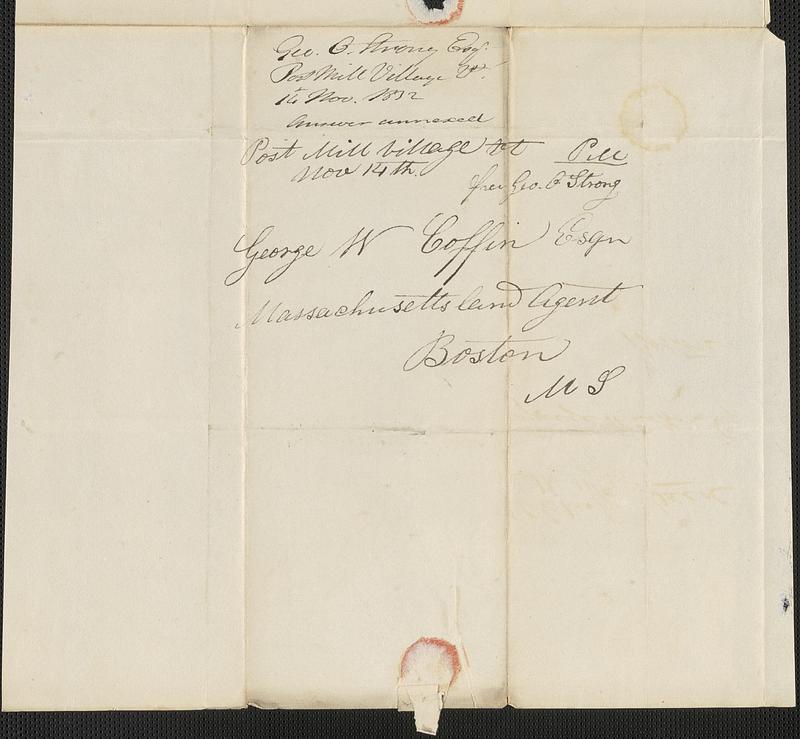 Geo. O. Strong Esqr.
Post Mill Village Vt.
14 Nov. 1832
Answer annexed
Post Mill Village Vt P.M
Nov 14th.
free Geo. O Strong
George W Coffin Esqr
Massachusetts land Agent
Boston
M S